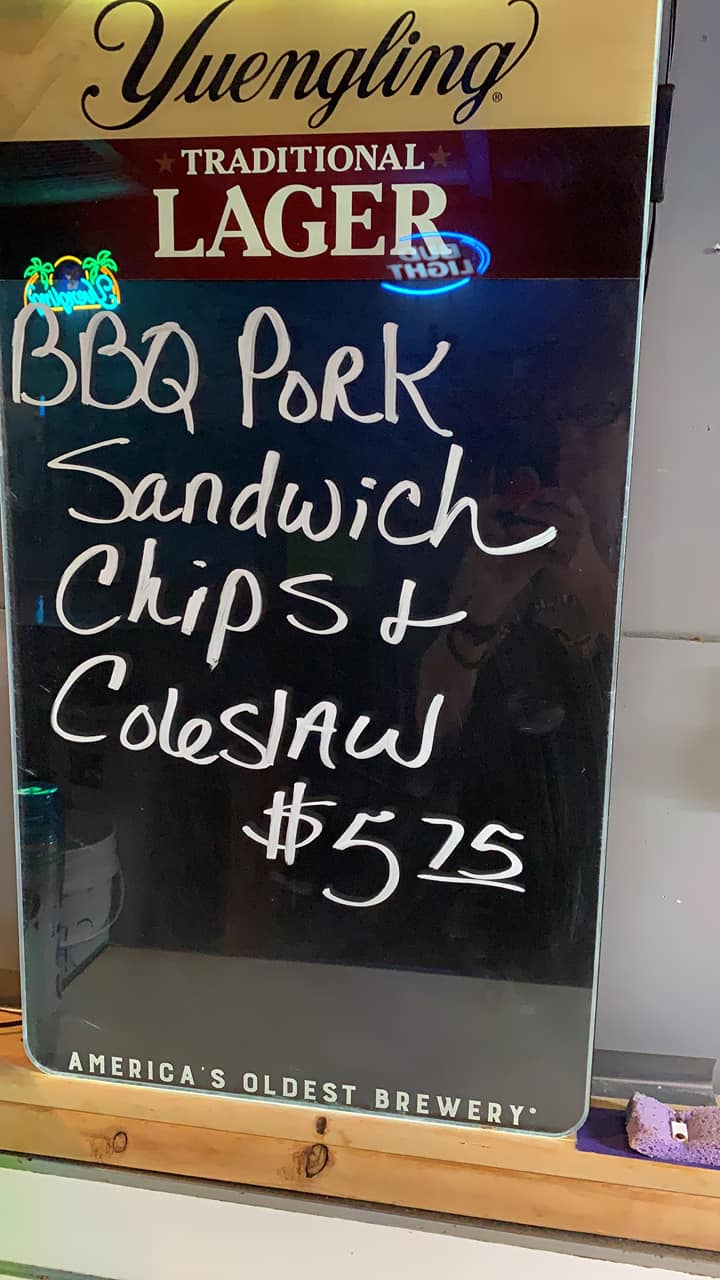 Yuengling®
TRADITIONAL
LAGER
BUD
LIGHT
Yuengling
BBQ PORK
Sandwich
Chips &
Coleslaw
$5 75
AMERICA'S OLDEST BREWERY®